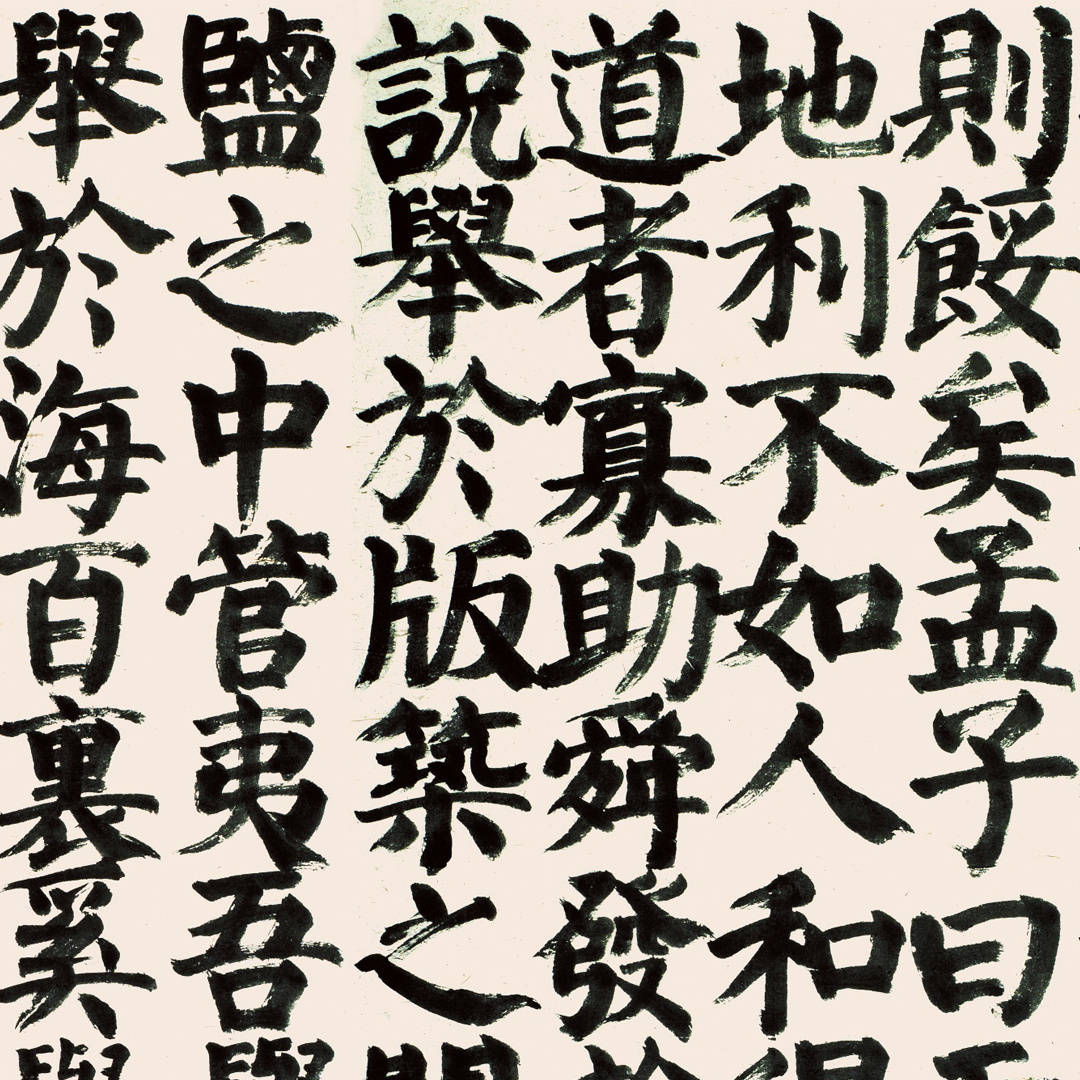 則餒矣孟子曰
地利不如人和
道者寡助舜發
說舉於版築之
鹽之中管夷吾
舉於海百裏奚